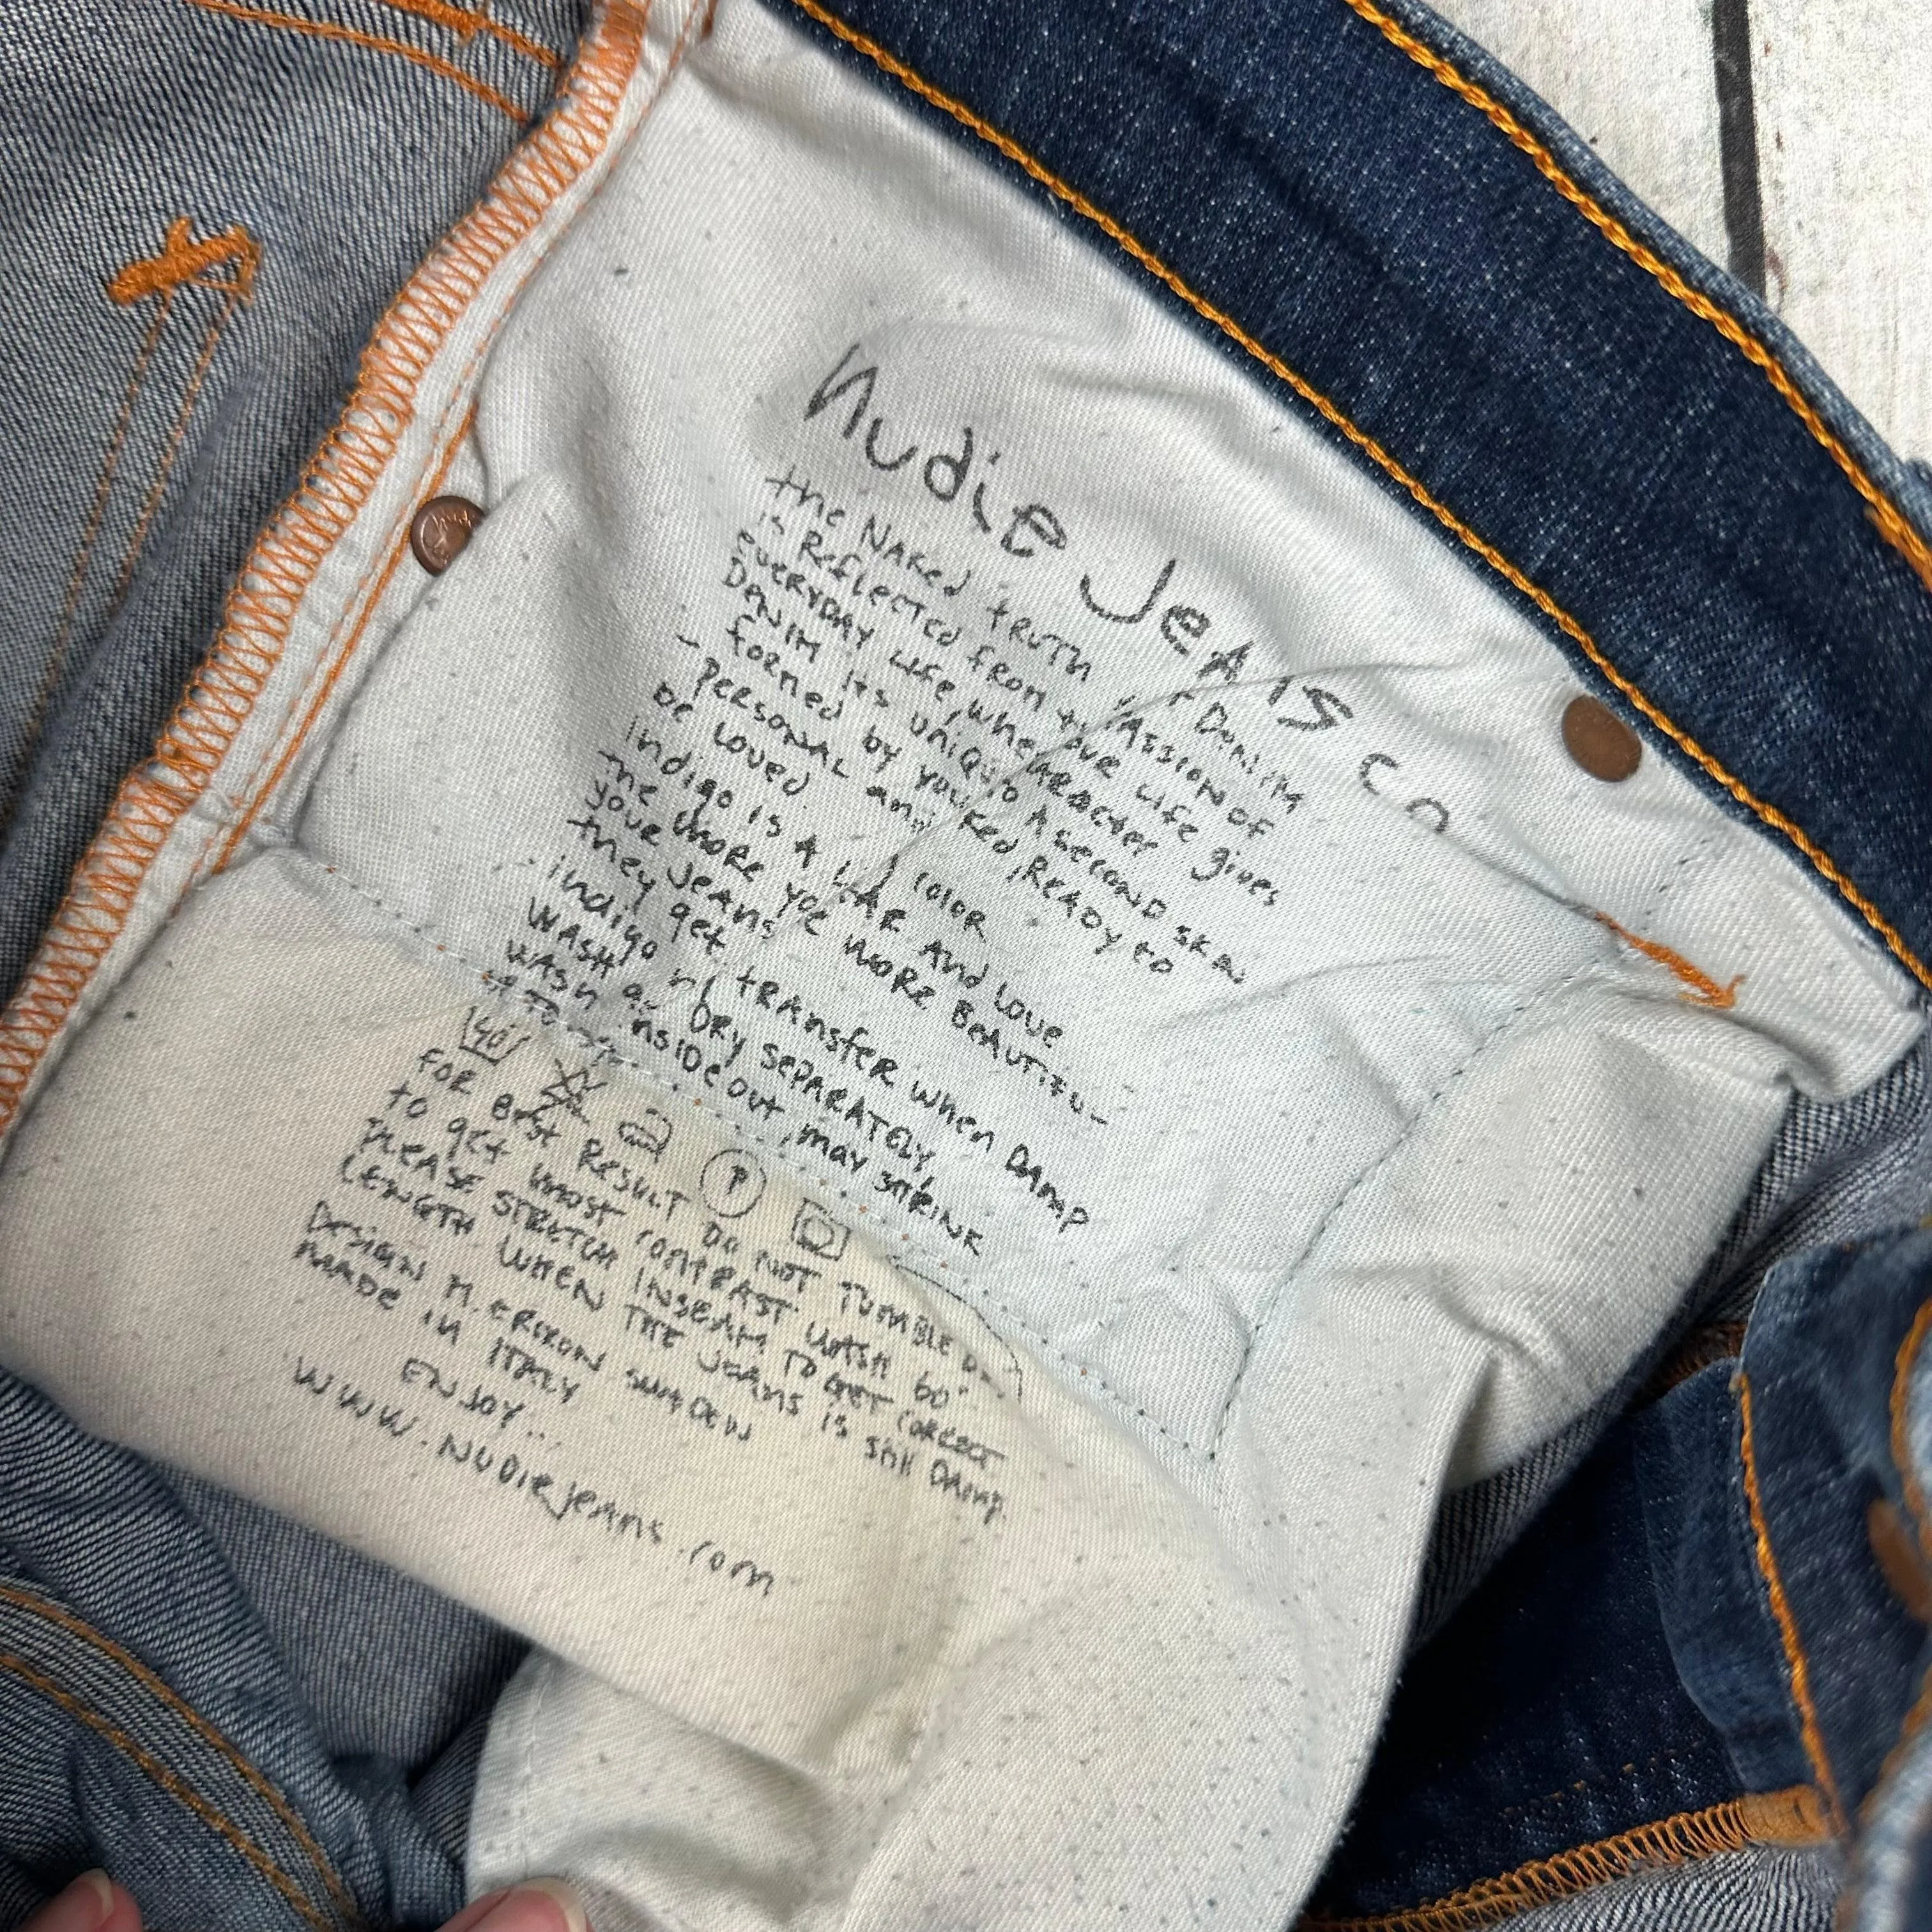 Nudie Jeans co
the NAKed tRUTh of DeniM
is ReflecTed from PAssion of
eveRYDAY Life, where your Life gives
DeniM its unique cHARActer
- formed by you to A second skin
- peRsonAL and ed, ReADy to
be loved.
indigo is A color
the more you WeAR And Love
your JeAns more BeAuTifu-
they get.
indigo tRAnsfeR when DAmp
WASH DRy sepARATeLy
WAsh insiDe out, may shRiNK
40
FOR Best Result Do NOT TUMBLE
to get most contRAST. WASH 60°
PLEASE STRETCH INSEAM TO GET CORRECT
LENGTH WHEN THE JeAns is still DAmp.
Design M. ERIXON SWEDEN
MADE IN ITALY
ENJOY...
WWW.NUDiejeAns.com
P